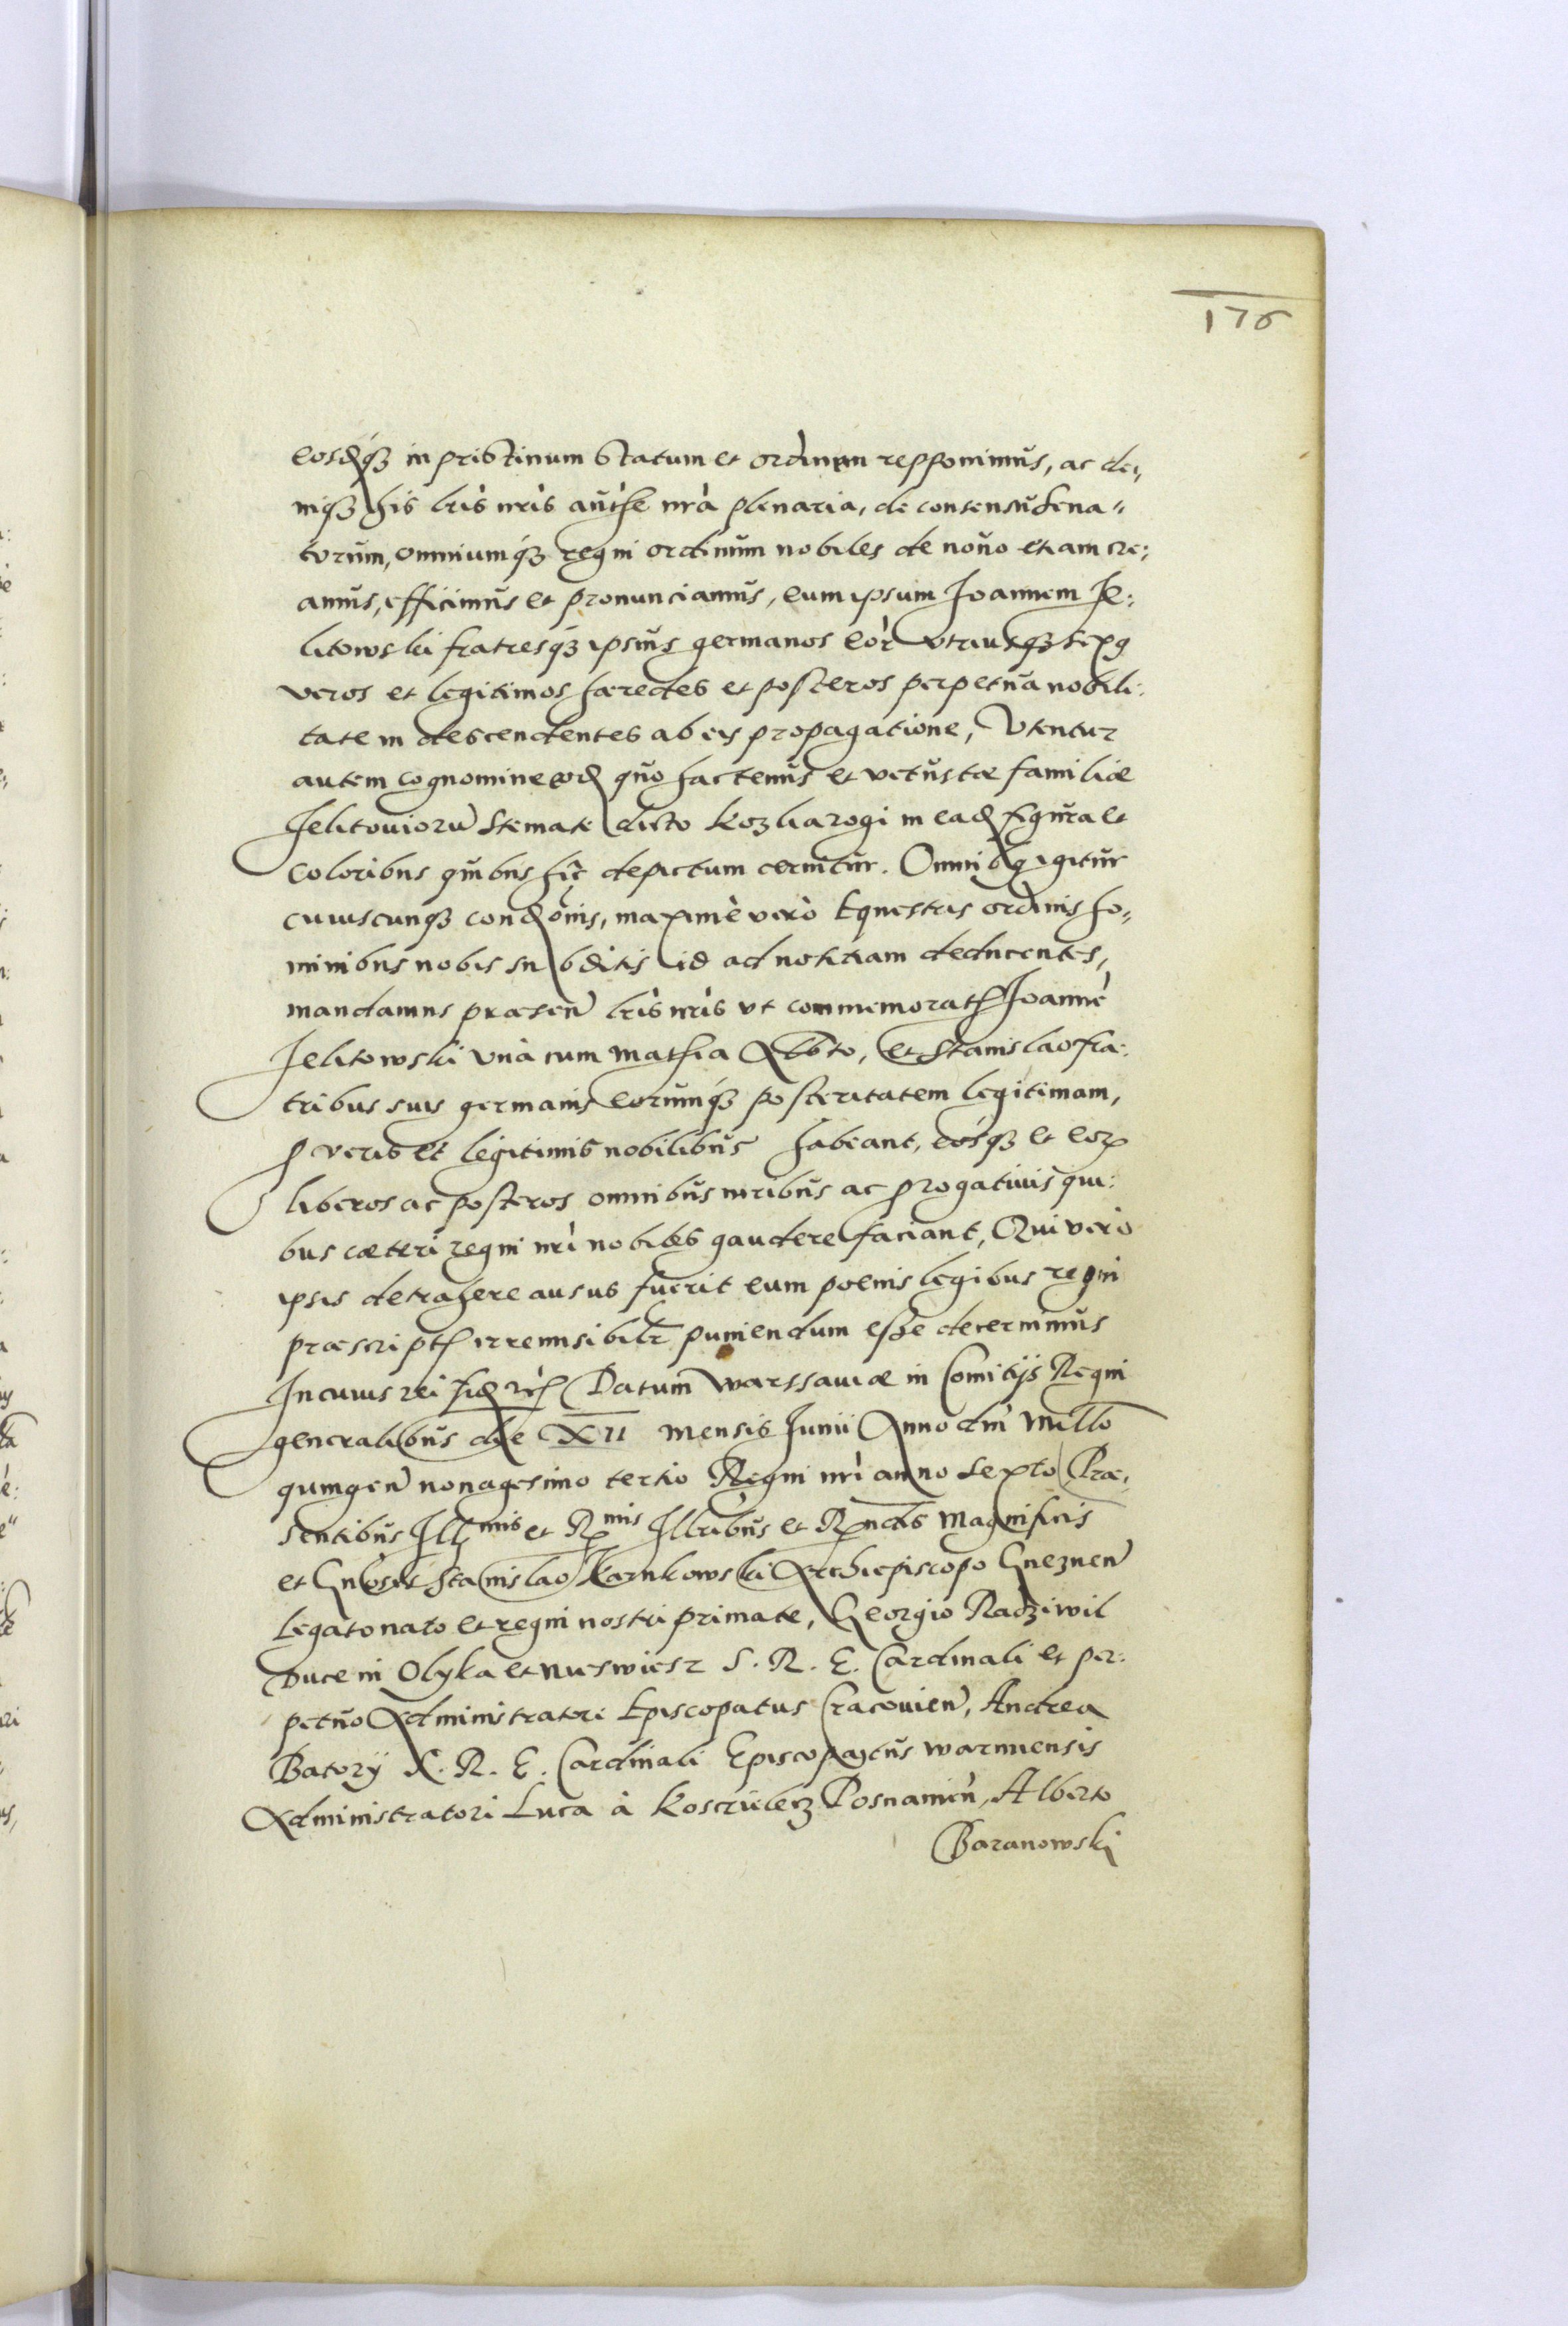 176
eosdq́3 in pristinum statum et ordinem repponimus, ac de,
niq3 his lr̀is nr̀is authe nr̀a plenaria, de consensu Sena"
torum, omniumq́3 regni ordinum nobiles de nouo etiam cre:
amus, efficimus et pronunciamus, eum ipsum Joannem Je:
litowski fratresq́3 ipsius germanos eor̀ vtriusq3 sexg
veros et legitimos haeredes et posteros perpetua nobili:
tate in descendentes ab eis propagatione, Vtentur
autem cognomine eod quo hactenus et vetustae familiae
Jelitouioru Stemate dicto Kozliarogi in ead figura et
coloribus quibus hic depictum cernitur. Omnibg igitur
cuiuscunq3 condōnis, maximè verò Equestris ordinis ho:
minibus nobis subditis id ad notitiam deducentes,
mandamus praesen lr̀is nr̀is vt commemorat Joannē
Jelitowski vnà cum Mathia Albto, et Stanislao fra:
tribus suis germanis eorumq́3 posteritatem legitimam,
p veris et legitimis nobilibus habeant, eosq́3 et eor
liberos ac posteros omnibus iuribus ac progatiuis qui:
bus caeteri regni nr̀i nobiles gaudere faciant, Qui verò
ipsis detrahere ausus fuerit eum poenis legibus regni
praescript irremisibilr puniendum esse decernimus
In cuius rei fid Datum Warssauiae in Comitijs Regni
generalibus die XII mensis Junii Anno dn̄i Millō
quingen nonagesimo tertio Regni nr̀i anno Sexto Prae,
sentibus Illmis et Rmis Illribus et Rndis Magnificis
et Gnosis Stanislao Karnkowski Archiepiscopo Gneznen
Legato nato et regni nostri primate, Georgio Radziwil
Duce in Olyka et Nieswiesz S. R. E. Cardinali et per:
petuo Administratore Episcopatus Cracouien, Andrea
Batory S. R. E. Cardinali Episcopatus Warmiensis
Administratori Luca à Koscielecz Posnanien, Alberto
Baranowski